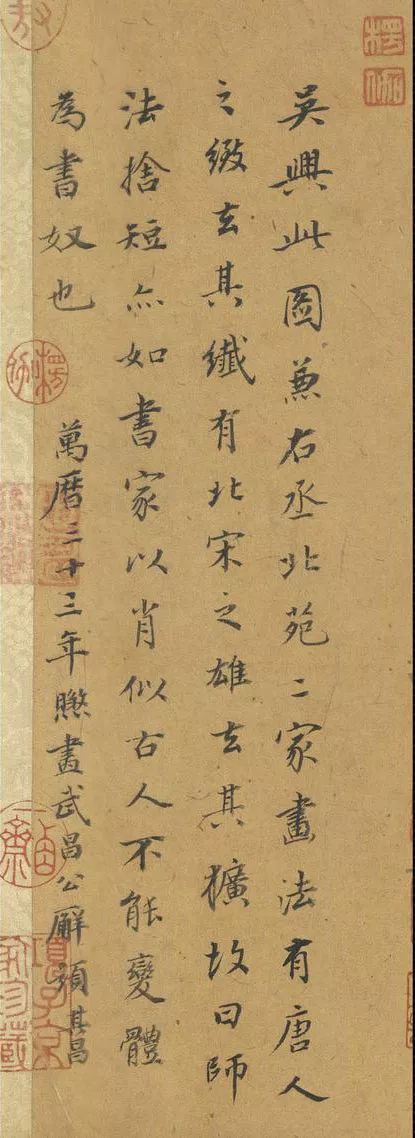 楞伽
吳興此圖兼右丞北苑二家畫法有唐人
之緻去其纖有北宋之雄去其獷故曰師
法捨短亦如書家以肖似古人不能變體
為書奴也 萬曆三十三年曬畫武昌公廨題其昌
項子京家珍藏